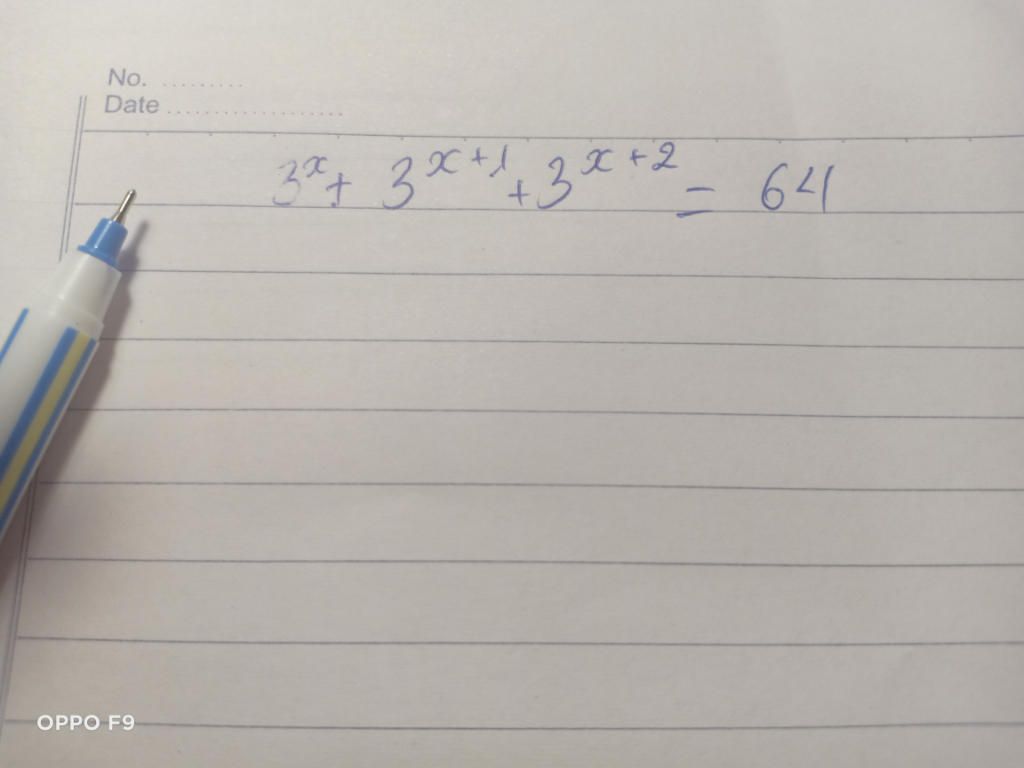 No. .........
Date ...................
3^x + 3^{x+1} + 3^{x+2} = 64
OPPO F9